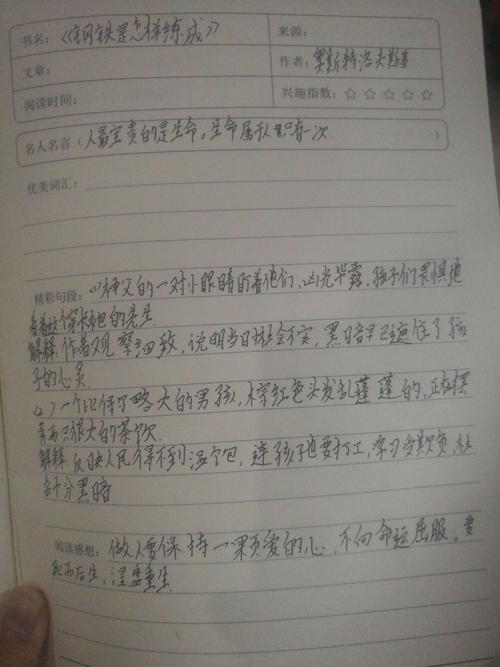 书名：《钢铁是怎样练成》
来源：
文章：
作者：奥斯特洛夫斯基
阅读时间：
兴趣指数：☆ ☆ ☆ ☆ ☆
名人名言（人最宝贵的是生命。生命属于人只有一次 ）
优美词汇：
精彩句段：(1)神父的一对小眼睛盯着他们，凶光毕露，孩子们畏惧地
看着这个穿长袍的先生
解释 作者观察细致，说明当时社会不安，黑暗早已遮住了孩
子的心灵
(2)一个比保尔略大的男孩，棕红色头发乱蓬蓬的，正在摆
弄两只很大的茶炊
解释 反映人民得不到温饱，连孩子也要打工，
会十分黑暗
阅读感想：做人要保持一颗爱的心，不向命运屈服。要
死而后生，涅盘重生